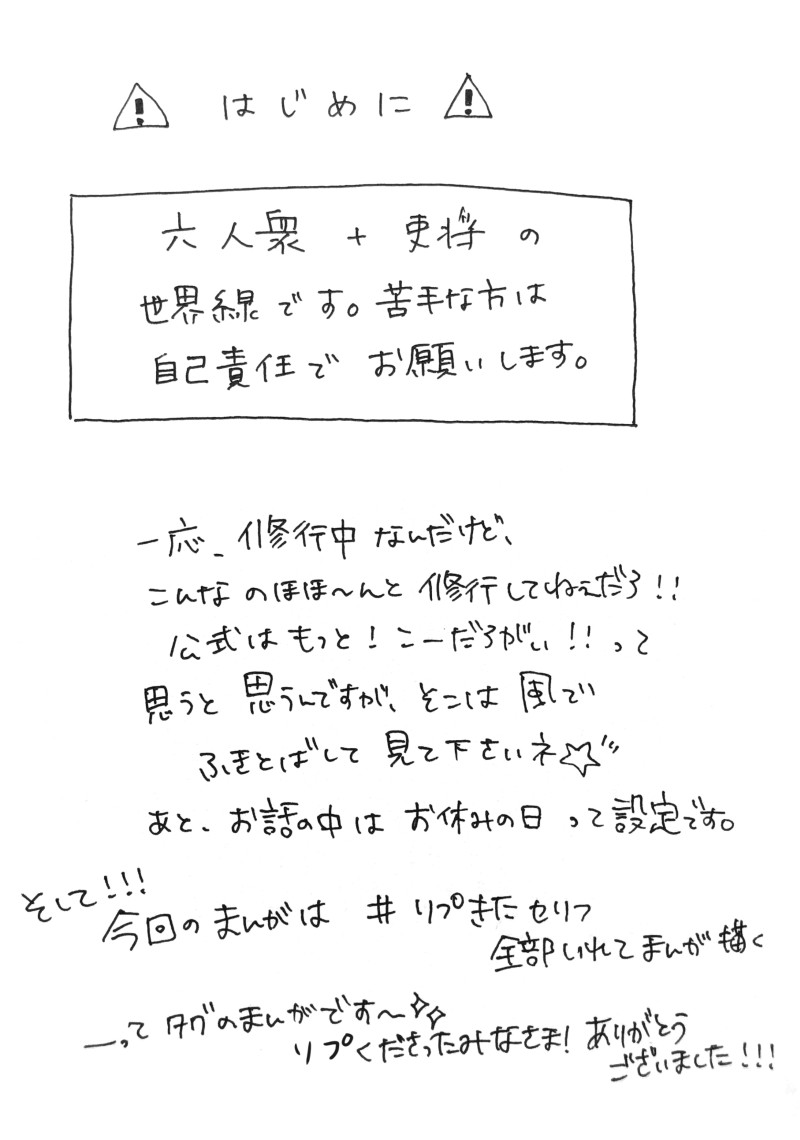 ⚠ はじめに ⚠
六人衆 + 吏将の
世界線です。苦手な方は
自己責任でお願いします。
一応、修行中なんだけど、
こんなのほほ〜んと修行してねぇだろ!!
公式はもっと!こーだろがい!!って
思うと思うんですが、そこは風で
ふきとばして見て下さいネ☆
あと、お話の中はお休みの日って設定です。
そして!!!
今回のまんがは #リプきたセリフ
全部いれてまんが描く
―ってタグのまんがです〜✧✧
リプくださったみなさま!ありがとう
ございました!!!